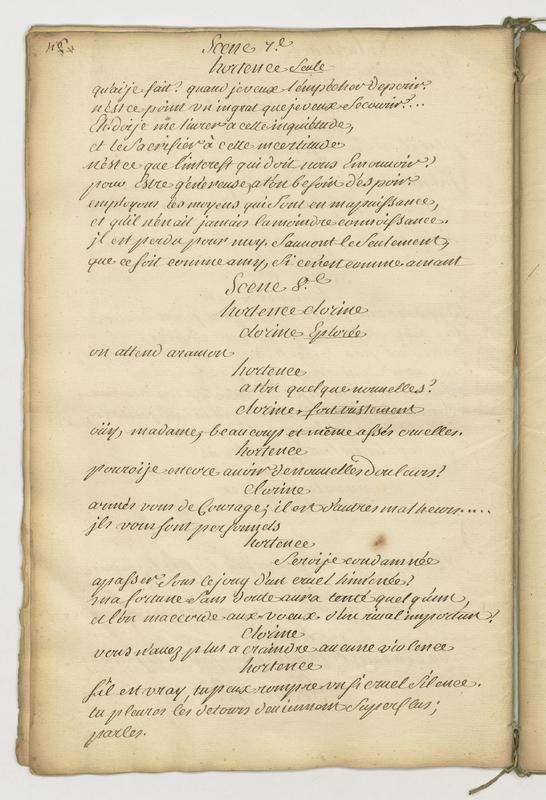 Scene 7.e
hortence Seule
qu'aije fait? quand je veux l'empêcher deperir?
n'est ce point un ingrat que je veux Secourir?...
Et doije me livrer a cette inquiétude,
et le Sacrifier à cette incertitude
n'est ce que l'interest qui doit nous Emouvoir?
pour Estre genereuse, a t'on besoin d'espoir?
employons les moyens qui sont en ma puissance,
et qu'il n'en ait jamais la moindre connoissance.
il est perdu pour moy. Sauvons le Seulement,
que ce soit comme amy, Si ce n'est comme amant
Scene 8.e
hortence clorine
clorine Eplorée
on attend aramon
hortence
a t'on quelque nouvelles?
clorine, fort tristement
oüy, madame, beaucoup et même assés cruelles.
hortence
pouroije encore avoir de nouvelles douleurs?
clorine
armés vous de Courage; il est d'autres malheurs.....
ils vous sont personnels
hortence
Seroije condamnée
a passer sous le joug d'un cruel himénée?
ma fortune sans doute aura tenté quelqu'un,
et l'on m'accorde aux voeux d'un rival importun?
clorine
vous n'avez plus a craindre aucune violence
hortence
s'il est vray, tu peux rompre un si cruel Silence.
tu pleures les detours deviennent superflus;
parles.